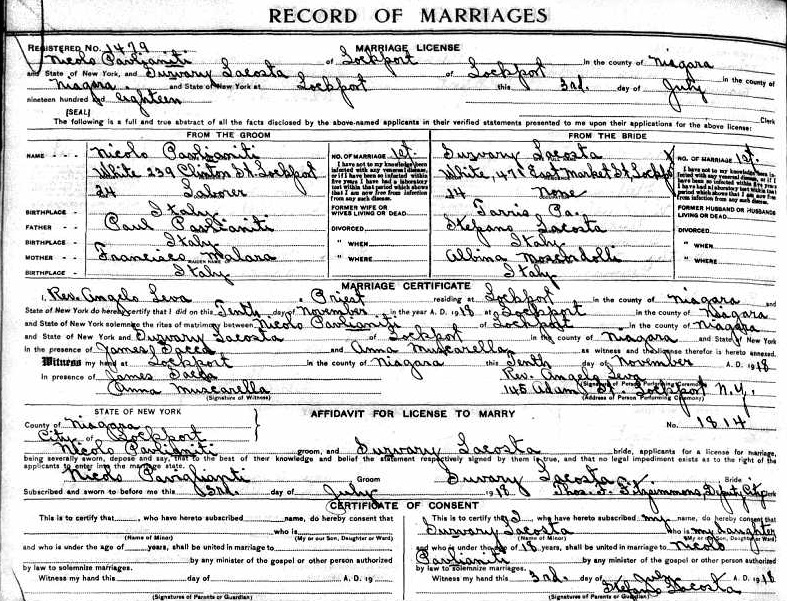 RECORD OF MARRIAGES
REGISTERED No. 1479 MARRIAGE LICENSE
Nicolo Pavlianiti of Lockport in the county of Niagara
and State of New York, and Survary Lacosta of Lockport in the county of
Niagara and State of New York at Lockport this 3rd. day of July
nineteen hundred and eighteen
(SEAL) Clerk
The following is a full and true abstract of all the facts disclosed by the above-named applicants in their verified statements presented to me upon their applications for the above license:
FROM THE GROOM
NAME - - - Nicolo Pavlianiti NO. OF MARRIAGE 1st.
White 239 Clinton St. Lockport
24 Laborer
I have not to my knowledge been infected with any venereal disease, or if I have been so infected within five years I have had a laboratory test within that period which shows that I am now free from infection from any such disease.
BIRTHPLACE - Italy FORMER WIFE OR WIVES LIVING OR DEAD
FATHER - - Paul Pavlianiti DIVORCED
BIRTHPLACE - Italy " WHEN
MOTHER - - Francisco Malara " WHERE
MAIDEN NAME
BIRTHPLACE - Italy
FROM THE BRIDE
Survary Lacosta NO. OF MARRIAGE 1st.
White, 478 East Market St. Lockport
14 None
I have not to my knowledge been infected with any venereal disease, or if I have been so infected within five years I have had a laboratory test within that period which shows that I am now free from infection from any such disease.
Farris Pa. FORMER HUSBAND OR HUSBANDS LIVING OR DEAD
Stefano Lacosta DIVORCED
Italy " WHEN
Albina " WHERE
Italy
MARRIAGE CERTIFICATE
I, Rev. Angelo Leva a Priest residing at Lockport in the county of Niagara and
State of New York do hereby certify that I did on this Tenth day of November in the year A. D. 1918 at Lockport in the county of Niagara
and State of New York solemnize the rites of matrimony between Nicolo Pavlianiti of Lockport in the county of Niagara
and State of New York and Survary Lacosta of Lockport in the county of Niagara and State of New York
in the presence of James Sacca and Anna Muscarella as witness and the license therefor is hereto annexed.
Witness my hand at Lockport in the county of Niagara this Tenth day of November A. D. 1918
In presence of James Sacca Rev. Angelo Leva
(Signature of Person Performing Ceremony)
Anna Muscarella 145 Adam St. Lockport N.Y.
(Signature of Witness) (Address of Person Performing Ceremony)
STATE OF NEW YORK
County of Niagara
City of Lockport
AFFIDAVIT FOR LICENSE TO MARRY
No. 1814
Nicolo Pavlianiti groom, and Survary Lacosta bride, applicants for a license for marriage,
being severally sworn, depose and say, that to the best of their knowledge and belief the statement respectively signed by them is true, and that no legal impediment exists as to the right of the
applicants to enter into the marriage state.
Nicolo Paviglianti Groom Survary Lacosta Bride
Subscribed and sworn to before me this 3rd. day of July 1918 Thos. F. Fitzsimmons, Deputy City Clerk
CERTIFICATE OF CONSENT
This is to certify that, who have hereto subscribed name, do hereby consent that
who is
(Name of Minor) (My or our Son, Daughter or Ward)
and who is under the age of years, shall be united in marriage to
by any minister of the gospel or other person authorized
by law to solemnize marriages.
Witness my hand this day of A. D. 19
(Signatures of Parents or Guardian)
This is to certify that I, who have hereto subscribed my name, do hereby consent that
Survary Lacosta who is my daughter
(Name of Minor) (My or our Son, Daughter or Ward)
and who is under the age of 18 years, shall be united in marriage to Nicolo
Pavlianiti by any minister of the gospel or other person authorized
by law to solemnize marriages.
Witness my hand this 3rd. day of July A. D. 1918
Stefano Lacosta
(Signatures of Parents or Guardian)